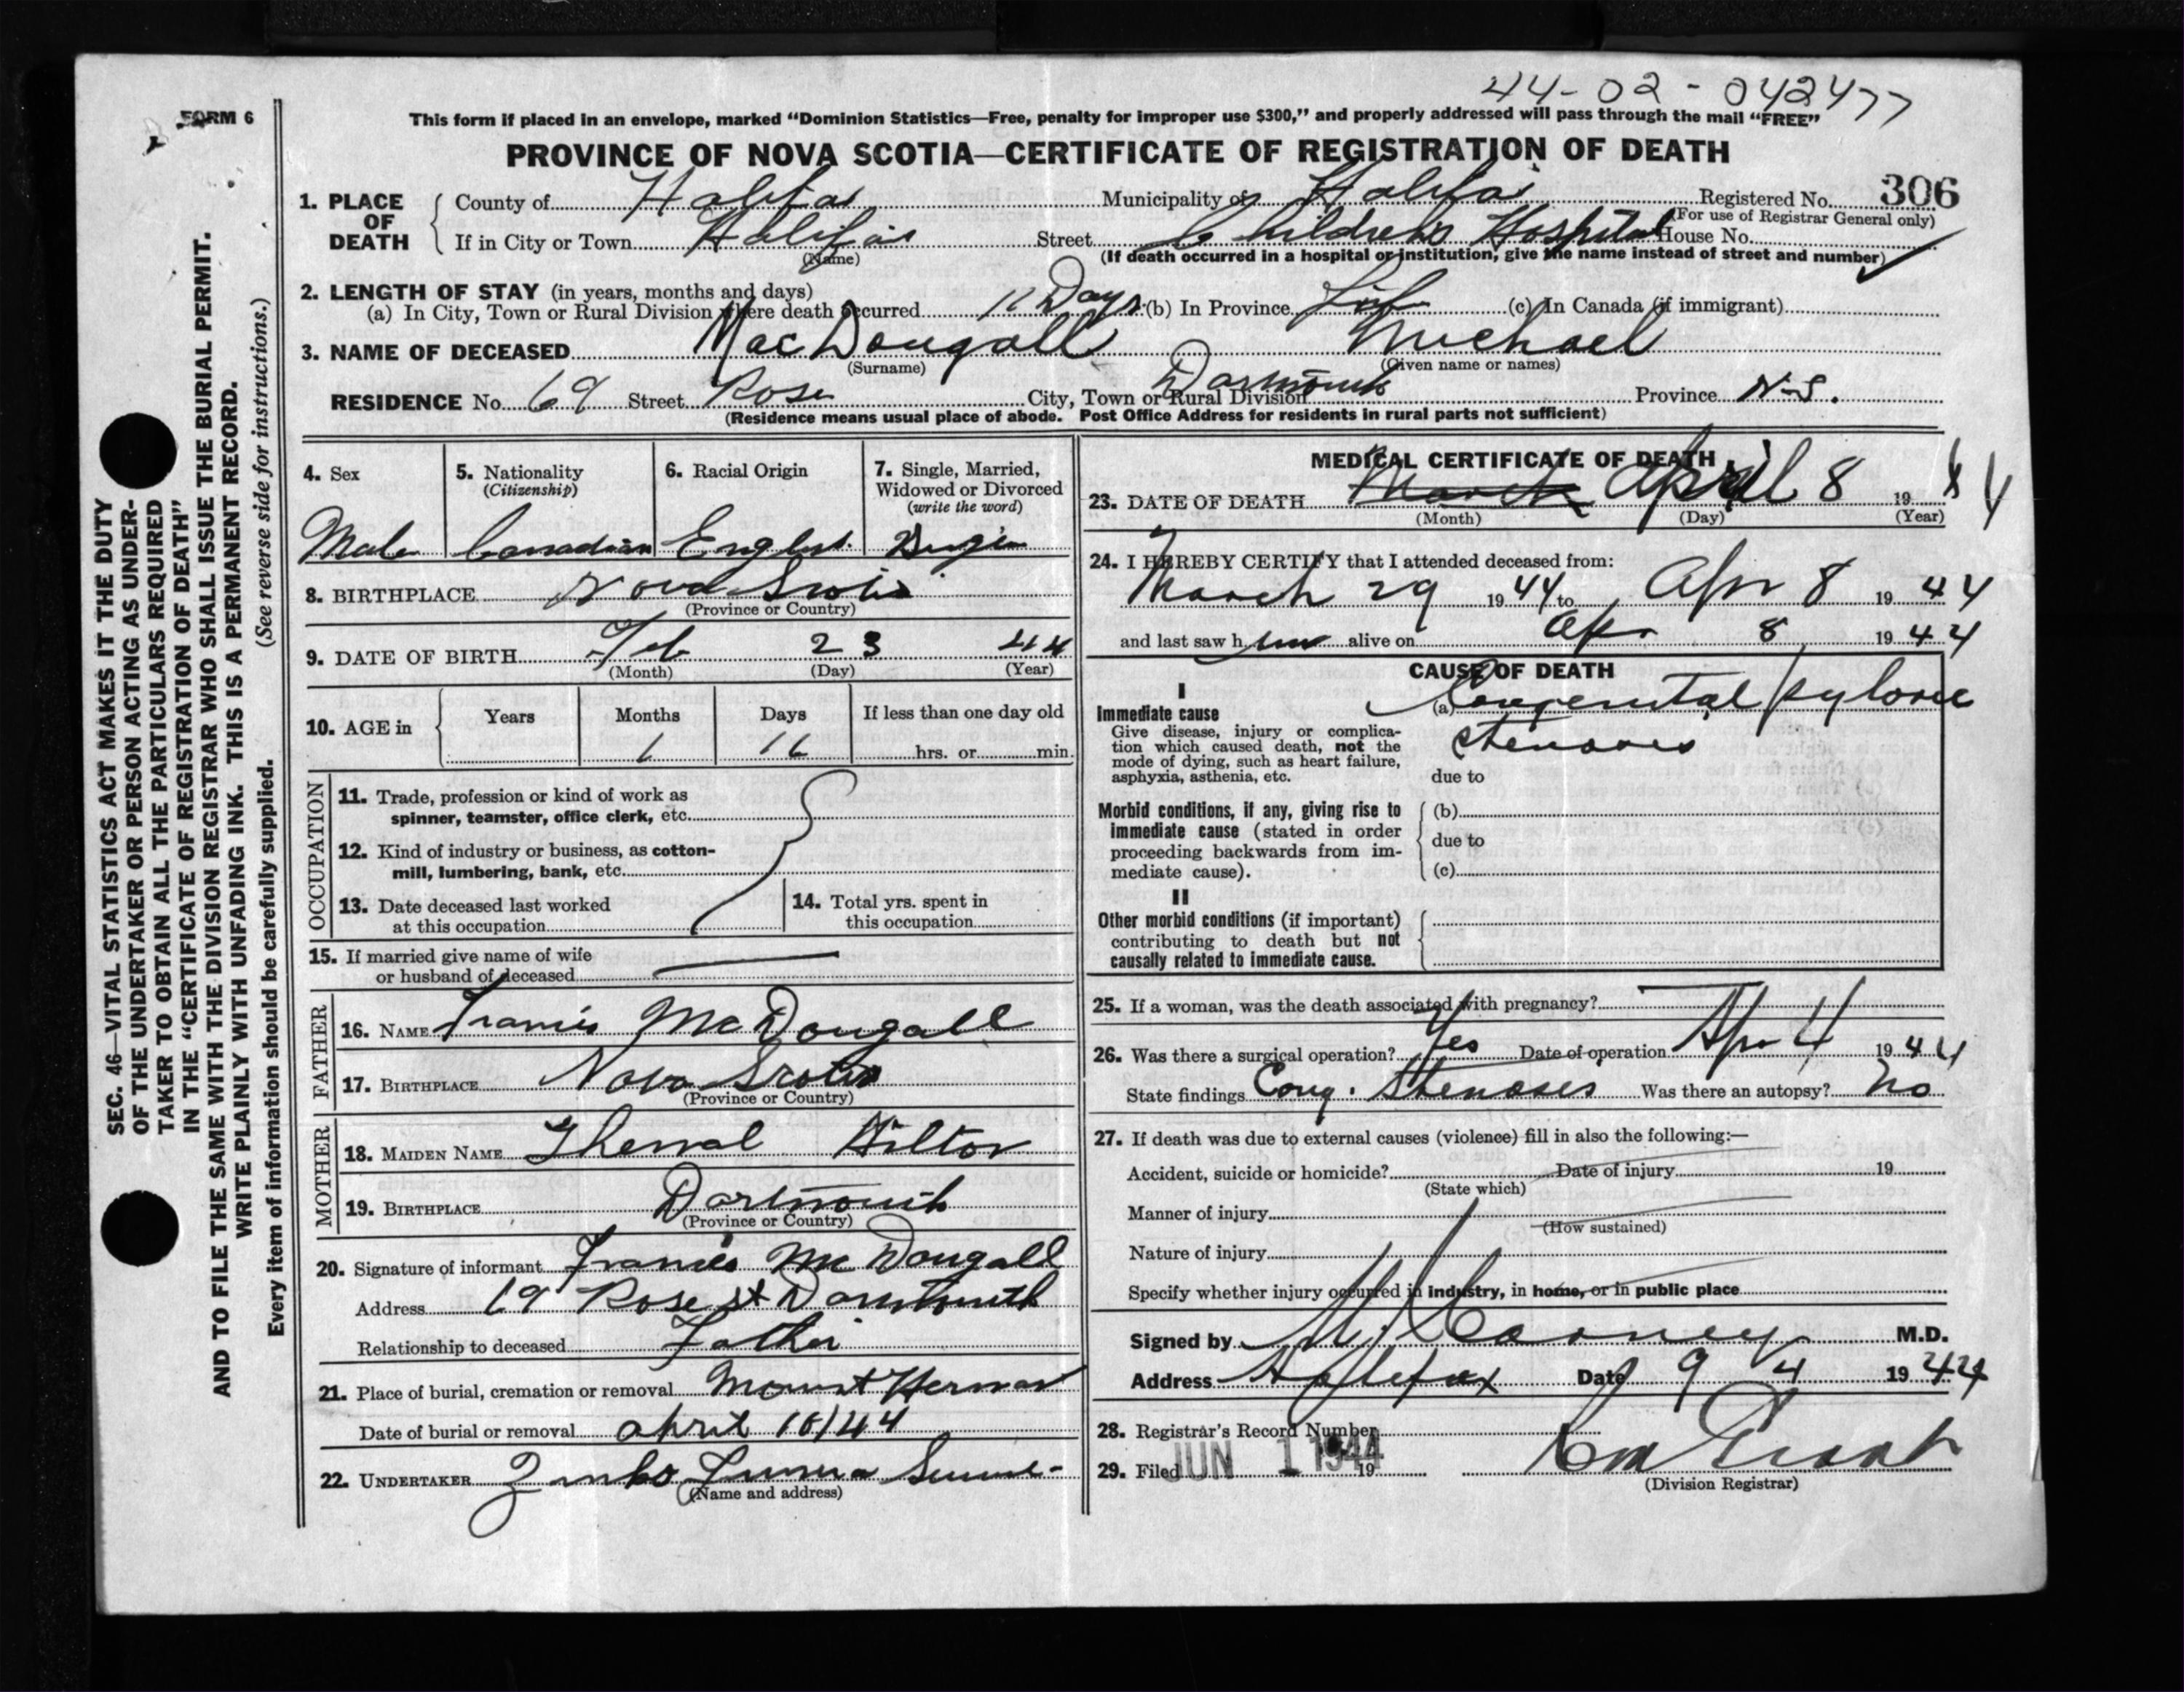 44-02-042477
FORM 6
This form if placed in an envelope, marked “Dominion Statistics—Free, penalty for improper use $300,” and properly addressed will pass through the mail “FREE”
PROVINCE OF NOVA SCOTIA—CERTIFICATE OF REGISTRATION OF DEATH
1. PLACE OF DEATH
County of Halifax Municipality of Halifax Registered No. 306
(For use of Registrar General only)
If in City or Town Halifax Street Childrens Hospital House No.
(Name) (If death occurred in a hospital or institution, give the name instead of street and number)
2. LENGTH OF STAY (in years, months and days)
(a) In City, Town or Rural Division where death occurred 11 Days (b) In Province Life (c) In Canada (if immigrant)
3. NAME OF DECEASED MacDougall Michael
(Surname) (Given name or names)
RESIDENCE No. 69 Street Rose City, Town or Rural Division Dartmouth Province N-S.
(Residence means usual place of abode. Post Office Address for residents in rural parts not sufficient)
4. Sex 5. Nationality 6. Racial Origin 7. Single, Married,
(Citizenship) Widowed or Divorced
(write the word)
Male Canadian English Single
8. BIRTHPLACE Nova Scotia
(Province or Country)
9. DATE OF BIRTH Feb 23 44
(Month) (Day) (Year)
10. AGE in Years Months Days If less than one day old
1 16 hrs. or min.
OCCUPATION
11. Trade, profession or kind of work as
spinner, teamster, office clerk, etc.
12. Kind of industry or business, as cotton-
mill, lumbering, bank, etc.
13. Date deceased last worked 14. Total yrs. spent in
at this occupation this occupation
15. If married give name of wife
or husband of deceased
FATHER
16. NAME Francis McDougall
17. BIRTHPLACE Nova Scotia
(Province or Country)
MOTHER
18. MAIDEN NAME Hilton
19. BIRTHPLACE Dartmouth
(Province or Country)
20. Signature of informant Francis McDougall
Address 69 Rose st Dartmouth
Relationship to deceased Father
21. Place of burial, cremation or removal Mount Herman
Date of burial or removal april 10/44
22. UNDERTAKER
(Name and address)
MEDICAL CERTIFICATE OF DEATH
23. DATE OF DEATH March April 8 19 44
(Month) (Day) (Year)
24. I HEREBY CERTIFY that I attended deceased from:
March 29 1944 to Apr 8 1944
and last saw him alive on Apr 8 1944
CAUSE OF DEATH
I
Immediate cause (a) Congenital pyloric
Give disease, injury or complica- stenoses
tion which caused death, not the
mode of dying, such as heart failure,
asphyxia, asthenia, etc. due to
Morbid conditions, if any, giving rise to (b)
immediate cause (stated in order
proceeding backwards from im- due to
mediate cause). (c)
II
Other morbid conditions (if important)
contributing to death but not
causally related to immediate cause.
25. If a woman, was the death associated with pregnancy?
26. Was there a surgical operation? Yes Date of operation Apr 4 1944
State findings Cong. Stenoses Was there an autopsy? No
27. If death was due to external causes (violence) fill in also the following:—
Accident, suicide or homicide? Date of injury 19
(State which)
Manner of injury
(How sustained)
Nature of injury
Specify whether injury occurred in industry, in home, or in public place
Signed by M.D.
Address Halifax Date 9 4 1944
28. Registrar's Record Number
29. Filed JUN 1 1944 19
(Division Registrar)
SEC. 46—VITAL STATISTICS ACT MAKES IT THE DUTY
OF THE UNDERTAKER OR PERSON ACTING AS UNDER-
TAKER TO OBTAIN ALL THE PARTICULARS REQUIRED
IN THE “CERTIFICATE OF REGISTRATION OF DEATH”
AND TO FILE THE SAME WITH THE DIVISION REGISTRAR WHO SHALL ISSUE THE BURIAL PERMIT.
WRITE PLAINLY WITH UNFADING INK. THIS IS A PERMANENT RECORD.
Every item of information should be carefully supplied. (See reverse side for instructions.)